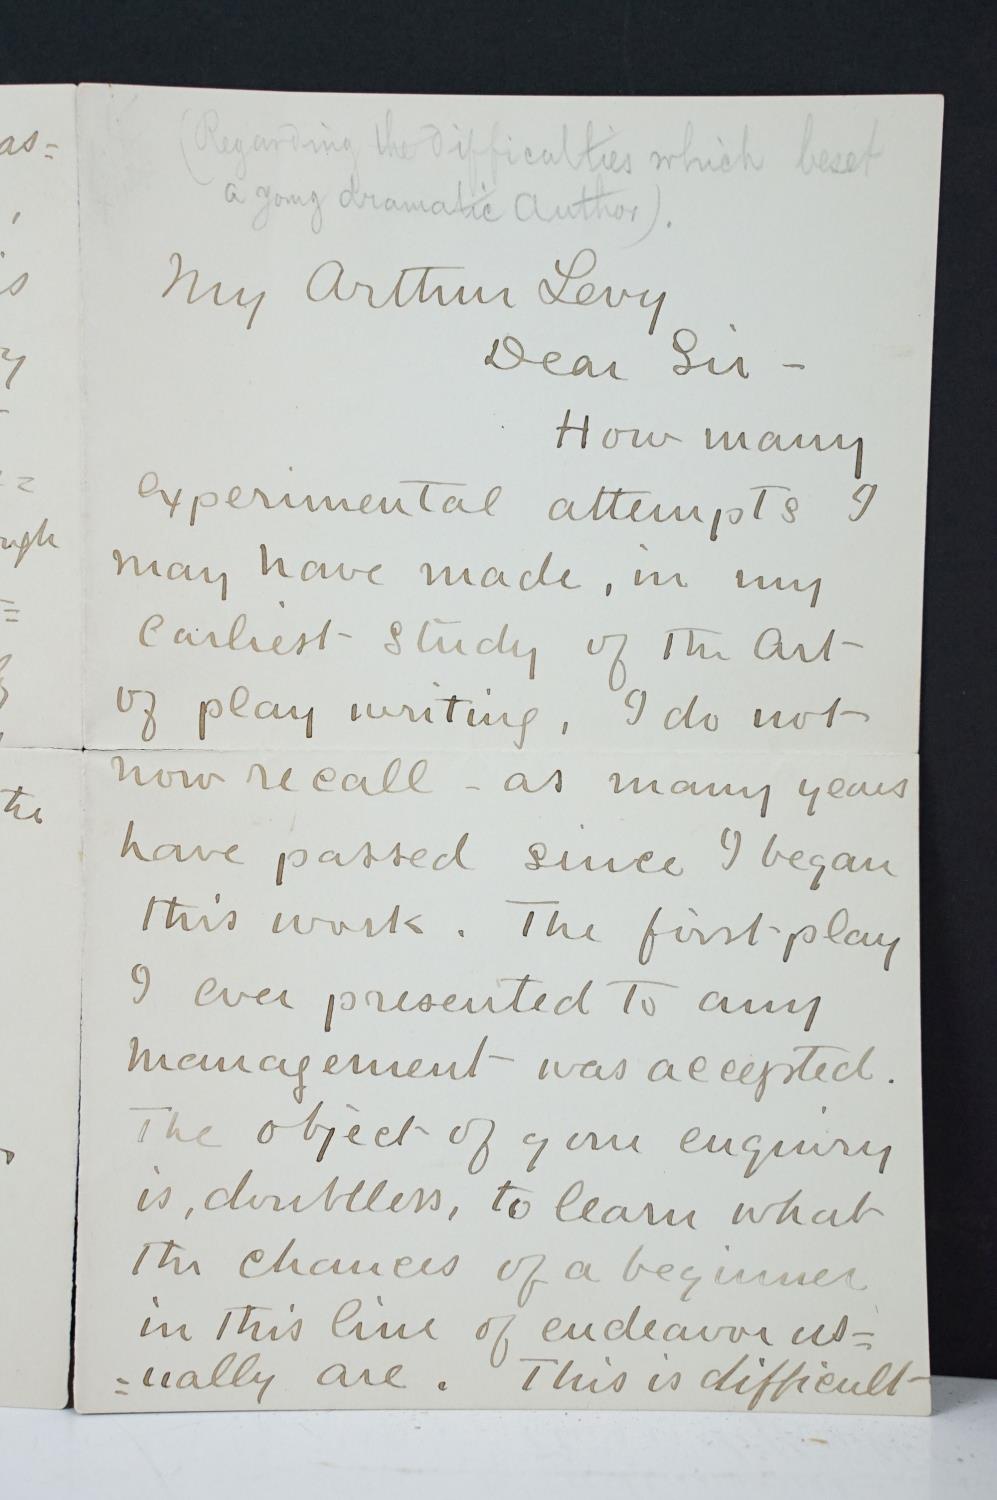 (Regarding the difficulties which beset
a yong dramatic Author).
My Arthur Levy
Dear Sir -
How many
experimental attempts I
may have made, in my
Earliest Study of the Art
of play writing, I do not
now recall - as many years
have passed since I began
this work. The first play
I ever presented to any
management was accepted.
The object of your enquiry
is, doubtless, to learn what
the chances of a beginner
in this line of endeavor us=
=ually are. This is difficult
as=
,
is
y
-
ugh
=
the